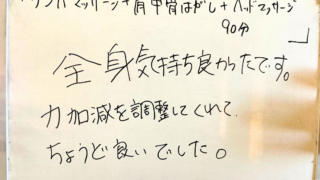 リンパマッサージ+肩甲骨はがし+ヘッドマッサージ
90分
全身気持ち良かったです。
力加減を調整してくれて
ちょうど良いでした。